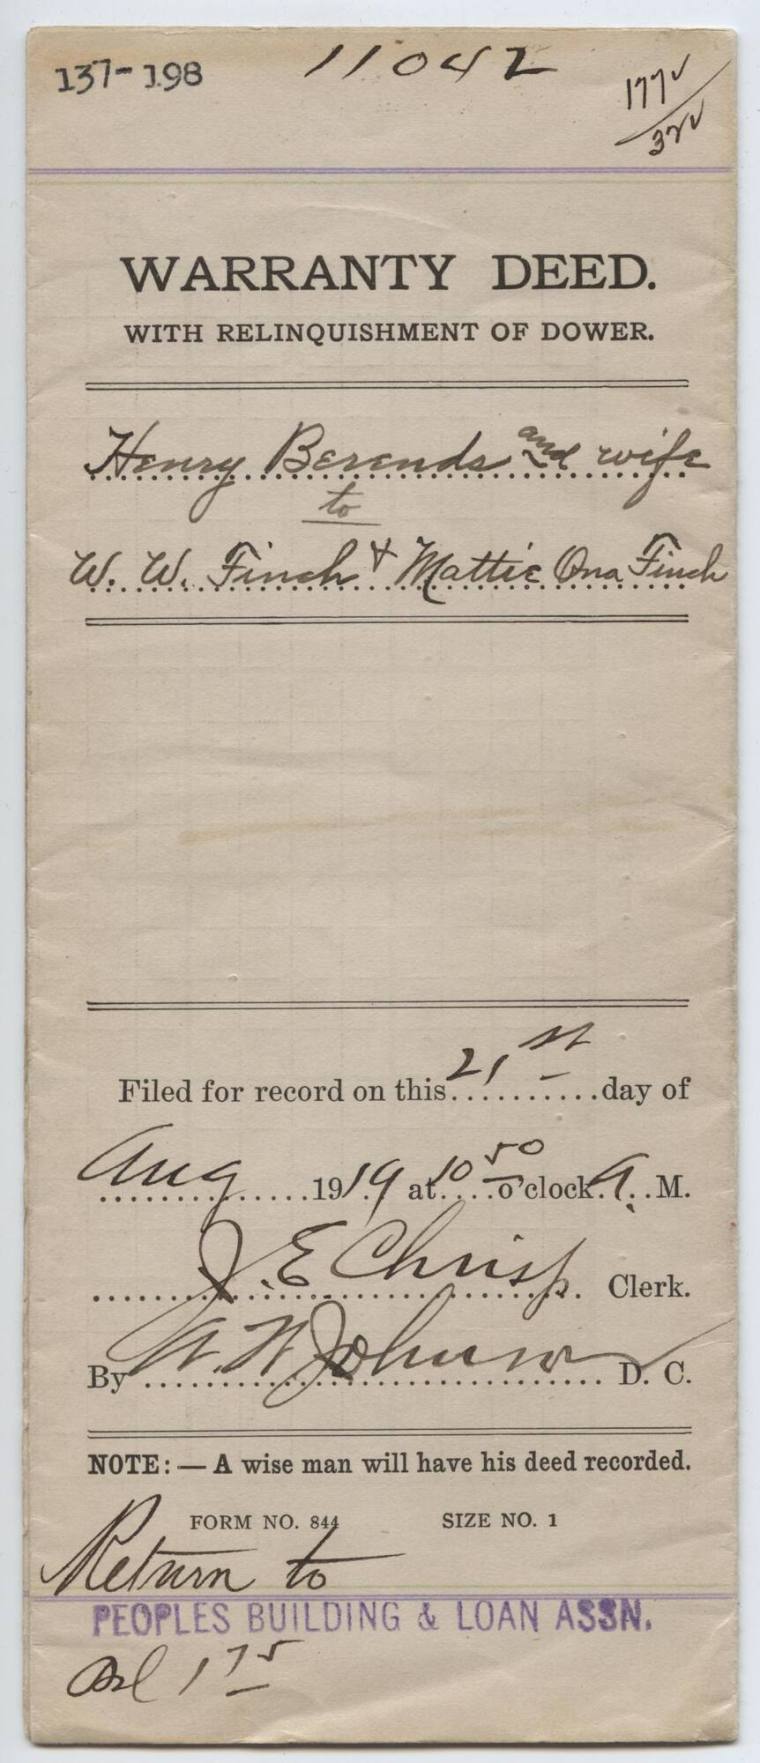 137-198 11042 177
322
WARRANTY DEED.
WITH RELINQUISHMENT OF DOWER.
Henry Berends and wife
to
W. W. Finch & Mattie Ona Finch
Filed for record on this 21st day of
Aug 1919 at 10 50 o'clock A. M.
J. E. Chrisp Clerk.
By W. W. Johnson D. C.
NOTE: — A wise man will have his deed recorded.
FORM NO. 844 SIZE NO. 1
Return to
PEOPLES BUILDING & LOAN ASSN.
175